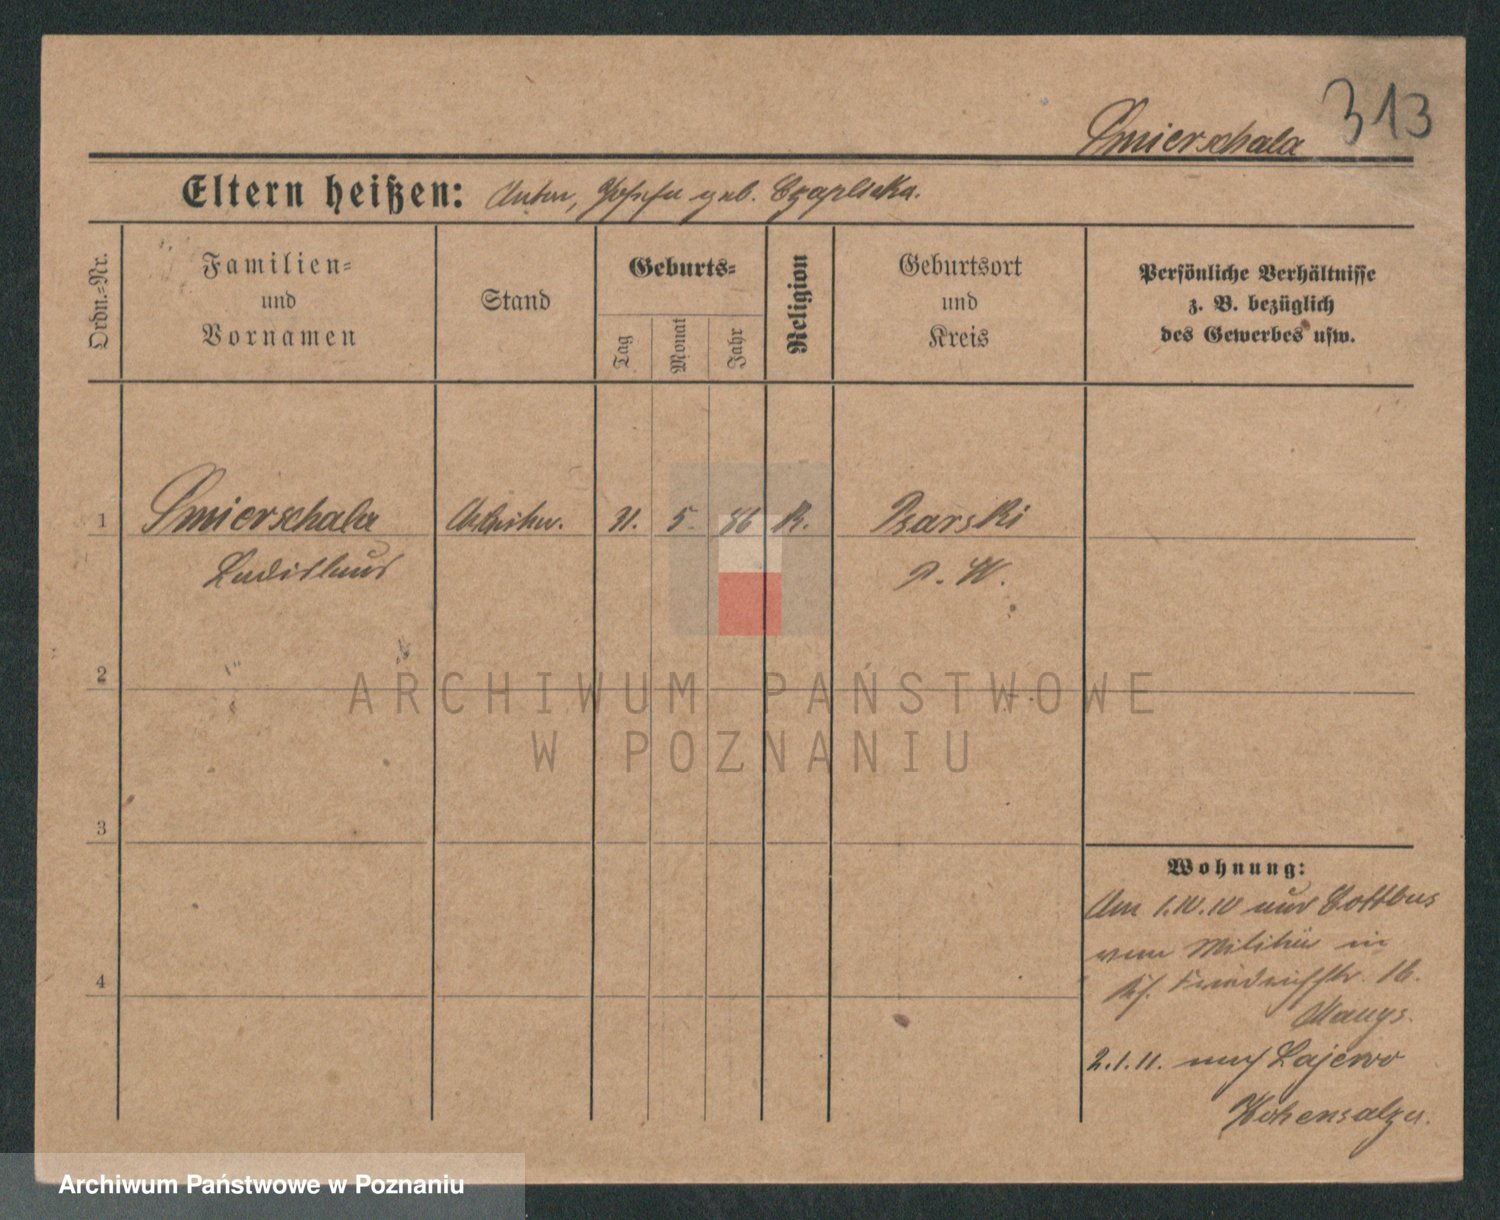 313
Smierschala
Eltern heißen: Anton, Josefa geb. Czaplicka.
Ordn.=Nr.
Familien=
und
Vornamen
Stand
Geburts=
Tag
Monat
Jahr
Religion
Geburtsort
und
Kreis
Persönliche Verhältnisse
z. B. bezüglich
des Gewerbes usw.
1 Smierschala 5. 86 K. Psarski
Ladislaus
2
3
4
Wohnung:
Am 1.10.10 Cottbus
vom Militär in
Friedrichstr. 16.
2.1.11. nach Lajewo
Hohensalza.
ARCHIWUM PAŃSTWOWE
W POZNANIU
Archiwum Państwowe w Poznaniu